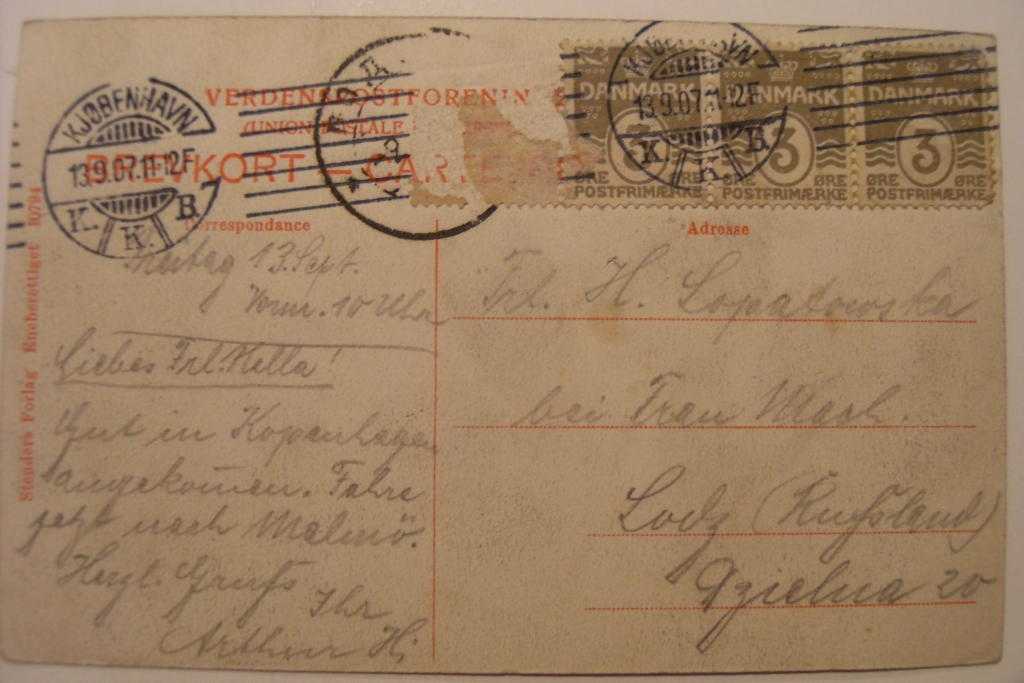 VERDENSPOSTFORENIN
(UNION POSTALE
BREVKORT — CARTE PO
KJØBENHAVN
13.9.07.11-12F
K. K. B.
KJØBENHAVN
13.9.07.11-12F
K. K. B.
DANMARK DANMARK DANMARK
3 3 3
ØRE ØRE ØRE
POSTFRIMÆRKE POSTFRIMÆRKE POSTFRIMÆRKE
Correspondance
Adresse
Stenders Forlag Eneberettiget
Freitag 13. Sept.
Vorm. 10 Uhr
Liebes Frl. Hella!
Gut in Kopenhagen
angekom̅en. Fahre
jetzt nach Malmö.
Herzl. Gruß
Ihr
Arthur H.
Frl. H. Lopatowska
bei Frau
Lodz (Rußland)
Dzielna 20